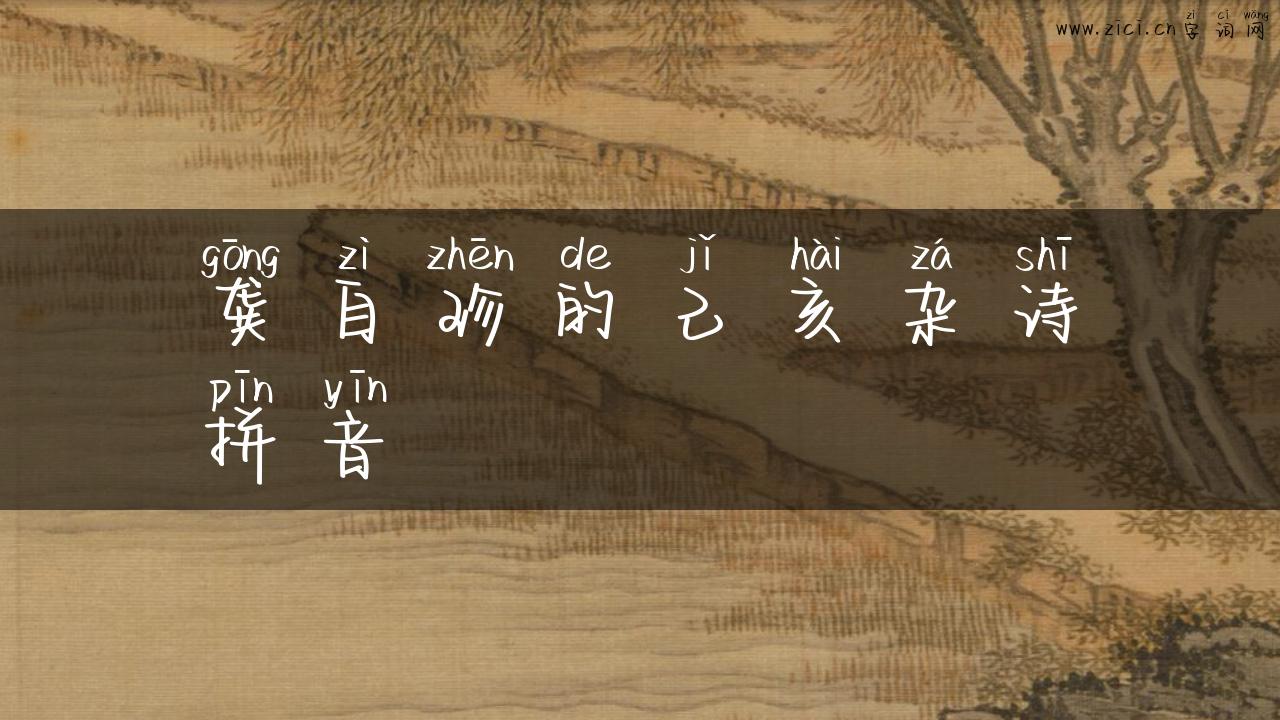 zì cí wǎng
www.zici.cn 字词网
gōng zì zhēn de jǐ hài zá shī
龚自珍的己亥杂诗
pīn yīn
拼音